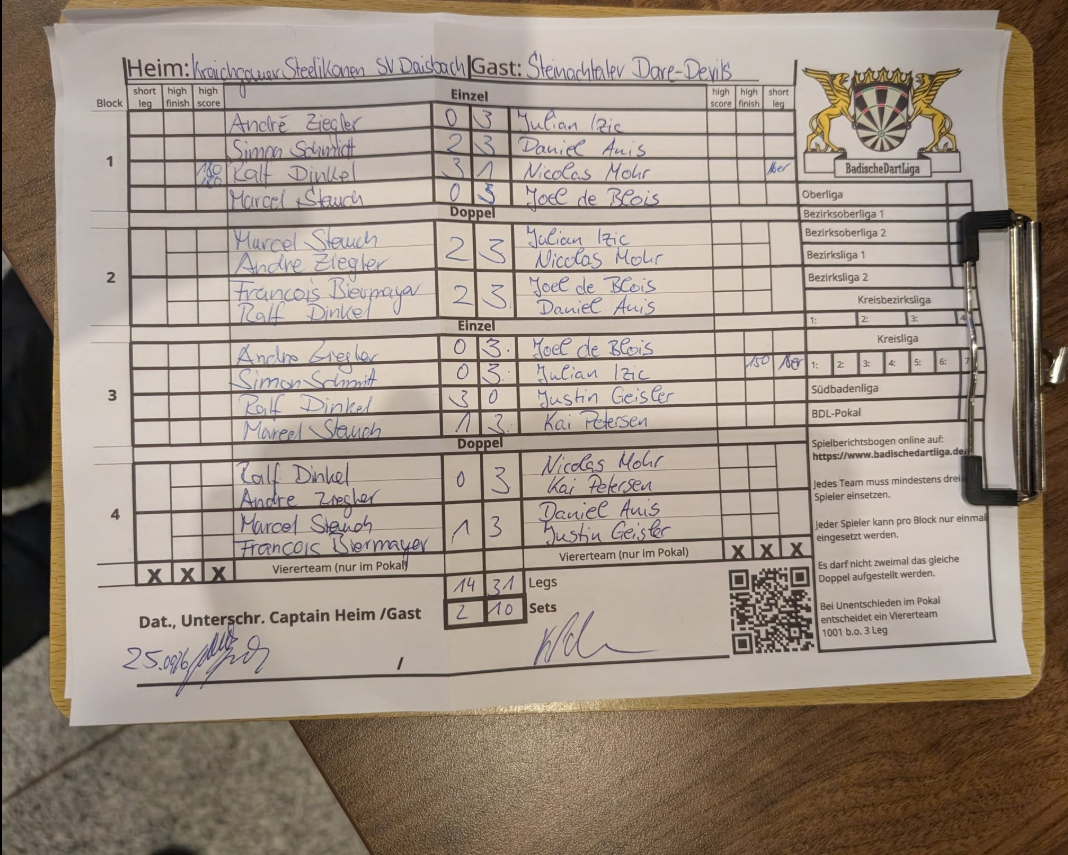 Heim: Kraichgauer Steelikanen SV Daisbach Gast: Steinachtaler Dare-Devils
Block short leg high finish high score Einzel high score high finish short leg
1
André Ziegler 0 3 Julian Izic
Simon Schmidt 2 3 Daniel Anis
180 180 Ralf Dinkel 3 1 Nicolas Mohr 18er
Marcel Stauch 0 3 Joel de Blois
Doppel
2
Marcel Stauch 2 3 Julian Izic
Andre Ziegler Nicolas Mohr
Francois Biermayer 2 3 Joel de Blois
Ralf Dinkel Daniel Anis
Einzel
3
Andre Ziegler 0 3 Joel de Blois
Simon Schmitt 0 3 Julian Izic 150 18er
Ralf Dinkel 3 0 Justin Geisler
Marcel Stauch 1 3 Kai Petersen
Doppel
4
Ralf Dinkel 0 3 Nicolas Mohr
Andre Ziegler Kai Petersen
Marcel Stauch 1 3 Daniel Anis
Francois Biermayer Justin Geisler
X X X Viererteam (nur im Pokal) Viererteam (nur im Pokal) X X X
14 31 Legs
2 10 Sets
Dat., Unterschr. Captain Heim /Gast
25.09.26
/
BadischeDartLiga
Oberliga
Bezirksoberliga 1
Bezirksoberliga 2
Bezirksliga 1
Bezirksliga 2
Kreisbezirksliga
1: 2: 3: 4
Kreisliga
1: 2: 3: 4: 5: 6: 7
Südbadenliga
BDL-Pokal
Spielberichtsbogen online auf:
https://www.badischedartliga.de
Jedes Team muss mindestens drei
Spieler einsetzen.
Jeder Spieler kann pro Block nur einmal
eingesetzt werden.
Es darf nicht zweimal das gleiche
Doppel aufgestellt werden.
Bei Unentschieden im Pokal
entscheidet ein Viererteam
1001 b.o. 3 Leg